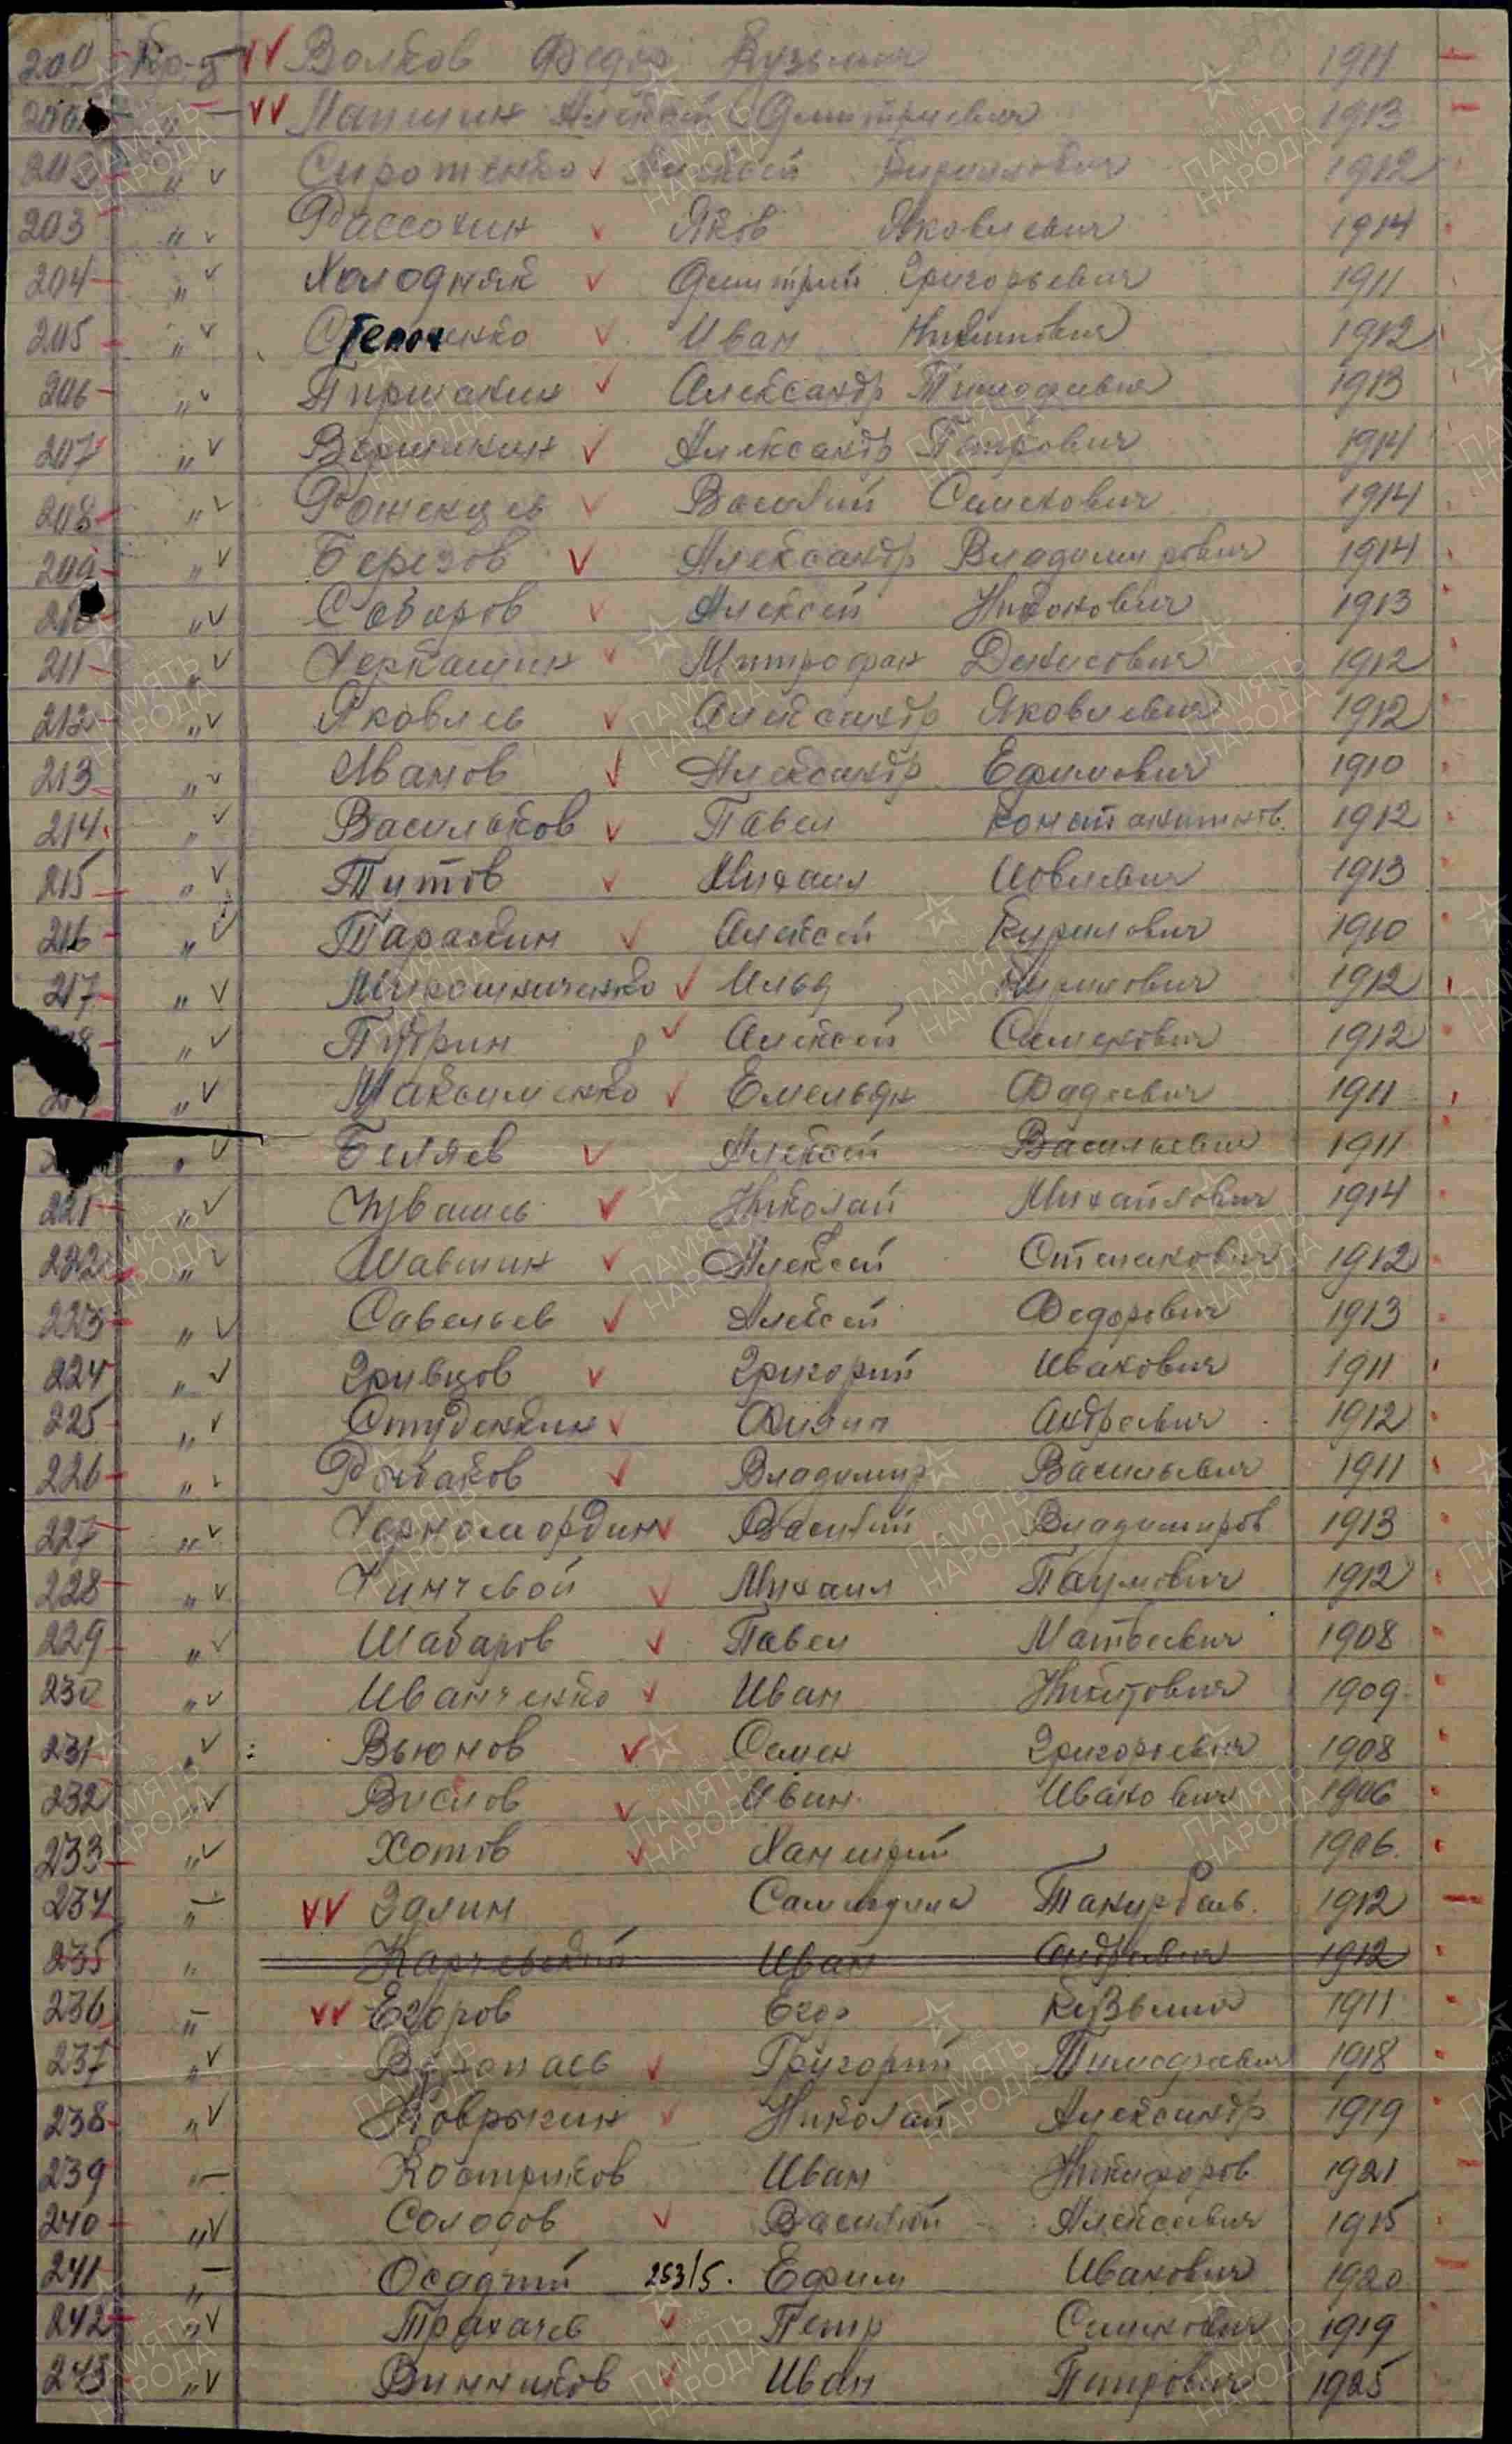 200 Кр-ц Волков Федор Кузьмич 1911
" Алексей Дмитриевич 1913
" Сиротенко Алексей Кириллович 1912
203 " Рассохин Яков Яковлевич 1914
204 " Холодняк Дмитрий Григорьевич 1911
205 " Иван 1912
206 " Александр Тимофеевич 1913
207 " Александр Петрович 1914
208 " Василий Семенович 1914
209 " Березов Александр Владимирович 1914
210 " Алексей 1913
211 " Черкашин Митрофан Денисович 1912
212 " Яковлев Александр Яковлевич 1912
213 " Иванов Александр Ефимович 1910
214 " Васильков Павел Константинов. 1912
215 " Титов Михаил Иовлевич 1913
216 " Тараскин Алексей Кирилович 1910
217 " Илья Кирилович 1912
" Алексей Семенович 1912
" Максименко Емельян Фадеевич 1911
" Беляев Алексей Васильевич 1911
221 " Чувашев Николай Михайлович 1914
222 " Шавшин Алексей Степанович 1912
223 " Савельев Алексей Федорович 1913
224 " Гривцов Григорий Иванович 1911
225 " Студенкин Андреевич 1912
226 " Рыбаков Владимир Васильевич 1911
227 " Черномордин Василий Владимиров 1913
228 " Михаил Наумович 1912
229 " Шабаров Павел Матвеевич 1908
230 " Иванченко Иван Никитович 1909
231 " Вьюнов Семен Григорьевич 1908
232 " Вислов Иван Иванович 1906
233 " Хотов 1906.
234 " Залин 1912
235 " Карчевский Иван Андреевич 1912
236 " Егоров Егор Кузьмич 1911
237 " Григорий Тимофеевич 1918
238 " Коврыгин Николай Александр 1919
239 " Костриков Иван Никифоров 1921
240 " Солодов Василий Алексеевич 1915
241 " Осадчий 253/5. Ефим Иванович 1920
242 " Трахачев Петр Семенович 1919
243 " Винников Иван Петрович 1925
ПАМЯТЬ НАРОДА